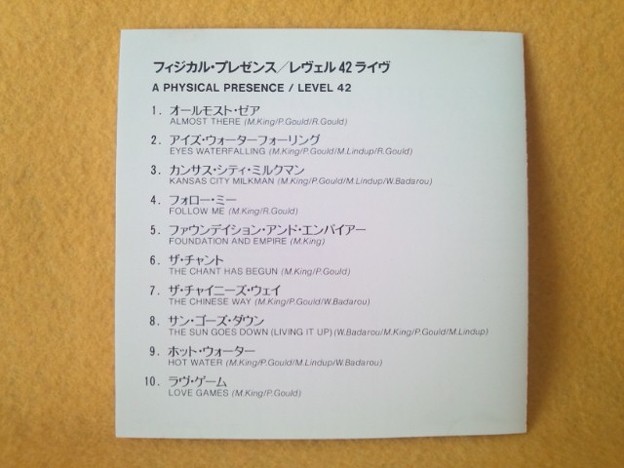 フィジカル・プレゼンス／レヴェル42ライヴ
A PHYSICAL PRESENCE / LEVEL 42
1. オールモスト・ゼア
ALMOST THERE (M.King/P.Gould/R.Gould)
2. アイズ・ウォーターフォーリング
EYES WATERFALLING (M.King/P.Gould/M.Lindup/R.Gould)
3. カンサス・シティ・ミルクマン
KANSAS CITY MILKMAN (M.King/P.Gould/M.Lindup/W.Badarou)
4. フォロー・ミー
FOLLOW ME (M.King/R.Gould)
5. ファウンデイション・アンド・エンパイアー
FOUNDATION AND EMPIRE (M.King)
6. ザ・チャント
THE CHANT HAS BEGUN (M.King/P.Gould)
7. ザ・チャイニーズ・ウェイ
THE CHINESE WAY (M.King/P.Gould/W.Badarou)
8. サン・ゴーズ・ダウン
THE SUN GOES DOWN (LIVING IT UP) (W.Badarou/M.King/P.Gould/M.Lindup)
9. ホット・ウォーター
HOT WATER (M.King/P.Gould/M.Lindup/W.Badarou)
10. ラヴ・ゲーム
LOVE GAMES (M.King/P.Gould)